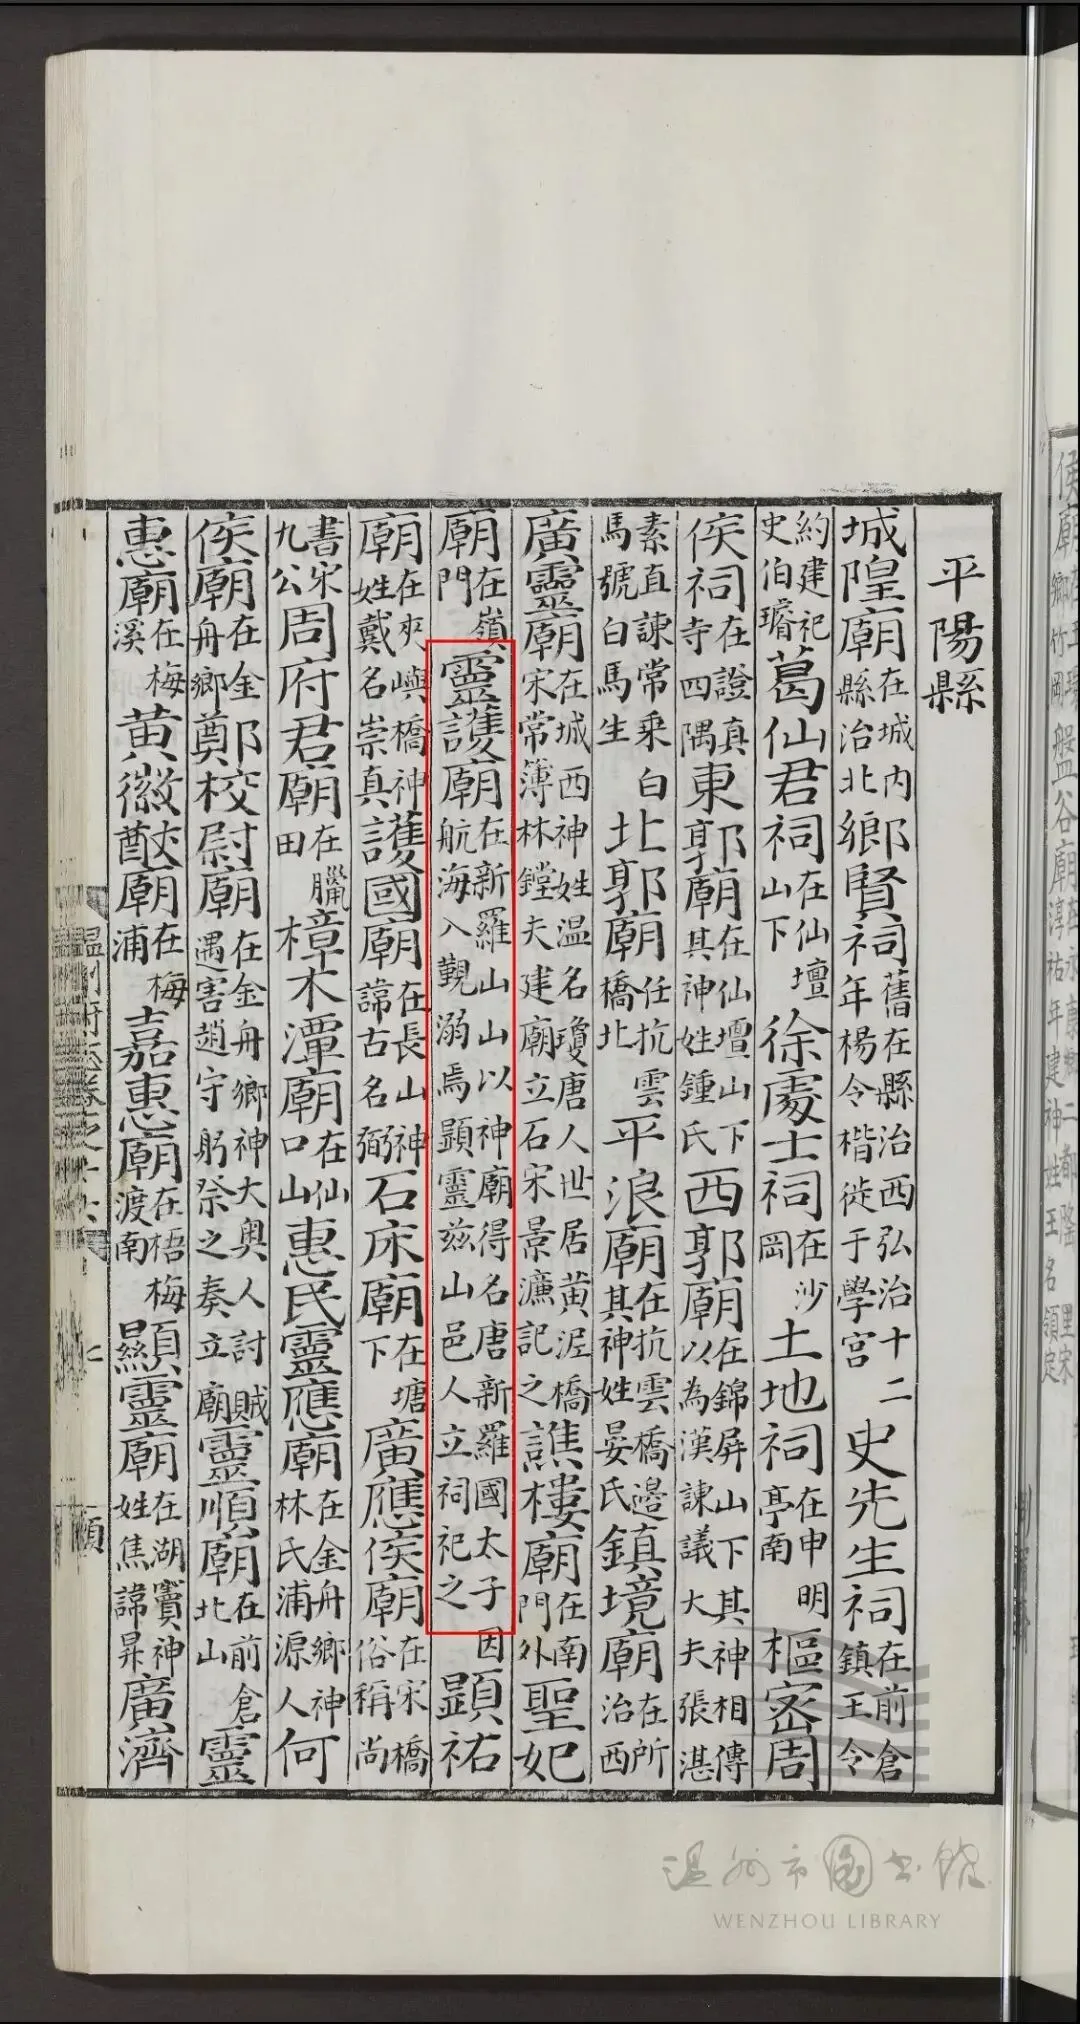 平陽縣
城隍廟在城内縣治北鄉賢祠舊在縣治西弘治十二年楊令楷徙于學宮史先生祠在前倉鎮王令
約建祀史伯璿葛仙君祠在仙壇山下徐處士祠在沙岡土地祠在申明亭南樞密周
侯祠在證真寺四隅東郭廟在仙壇山下其神姓鍾氏西郭廟在錦屏山下其神相傳以為漢諫議大夫張湛
素直諫常乘白馬號白馬生北郭廟在抗雲橋北平浪廟在抗雲橋邊其神姓晏氏鎮境廟在所治西
廣靈廟在城西神姓温名瓊唐人世居黃泥橋宋常簿林鏜夫建廟立石宋景濂記之譙樓廟在南門外聖妃
廟在嶺門靈護廟在新羅山山以神廟得名唐新羅國太子因航海入覲溺焉顯靈兹山邑人立祠祀之顯祐
廟在夾嶼橋神姓戴名崇真護國廟在長山神諱古名弼石床廟在塘下廣應侯廟在宋橋俗稱尚
書宋九公周府君廟在臘田樟木潭廟在仙口山惠民靈應廟在金舟鄉神林氏浦源人何
侯廟在金舟鄉鄭校尉廟在金舟鄉神大奥人討賊遇害趙守躬祭之奏立廟靈順廟在前倉北山靈
惠廟在梅溪黃徽猷廟在梅浦嘉惠廟在梧梅渡南顯靈廟在湖竇神姓焦諱昇廣濟
温州府志卷之十六
七
顧
温州市圖書館
WENZHOU LIBRARY